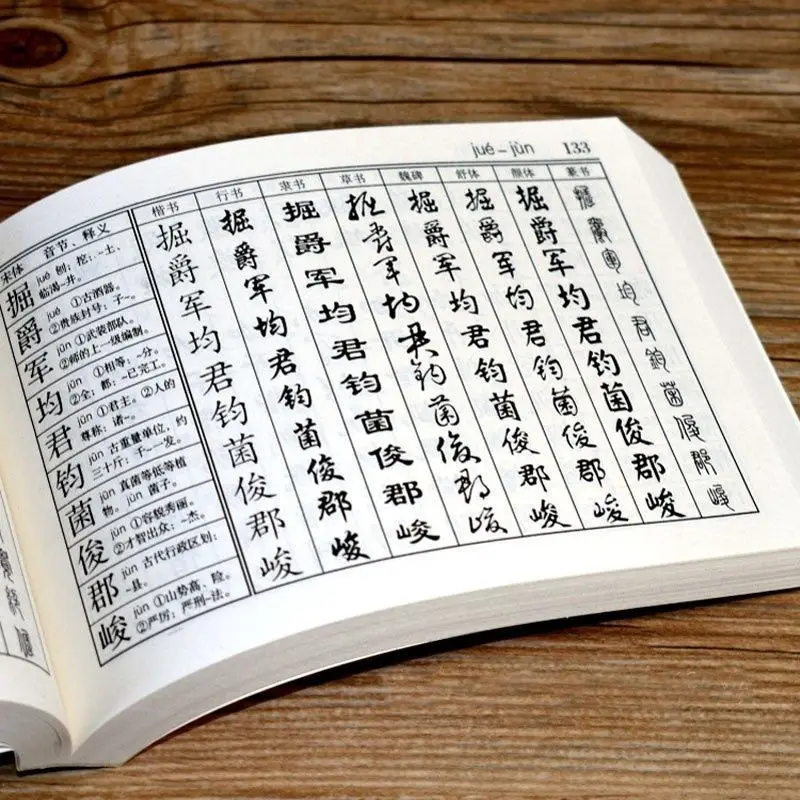 jué – jùn 133
宋体 音节、释义 楷书 行书 隶书 草书 魏碑 舒体 颜体 篆书
掘 jué 刨;挖:~土、
临渴~井。 掘 掘 掘 掘 掘 掘 掘 掘
爵 jué ①古酒器。
②贵族封号:子~。 爵 爵 爵 爵 爵 爵 爵 爵
军 jūn ①武装部队。
②师的上一级编制。 军 军 军 军 军 军 军 军
均 jūn ①相等:~分。
②全;都:~已完工。 均 均 均 均 均 均 均 均
君 jūn ①君主。②人的
尊称:诸~。 君 君 君 君 君 君 君 君
钧 jūn 古重量单位,约
三十斤:千~一发。 钧 钧 钧 钧 钧 钧 钧 钧
菌 jūn 真菌等低等植
物。jùn 菌子。 菌 菌 菌 菌 菌 菌 菌 菌
俊 jùn ①容貌秀丽。
②才智出众:~杰。 俊 俊 俊 俊 俊 俊 俊 俊
郡 jùn 古代行政区划:
~县。 郡 郡 郡 郡 郡 郡 郡 郡
峻 jùn ①山势高、险。
②严厉:严刑~法。 峻 峻 峻 峻 峻 峻 峻 峻